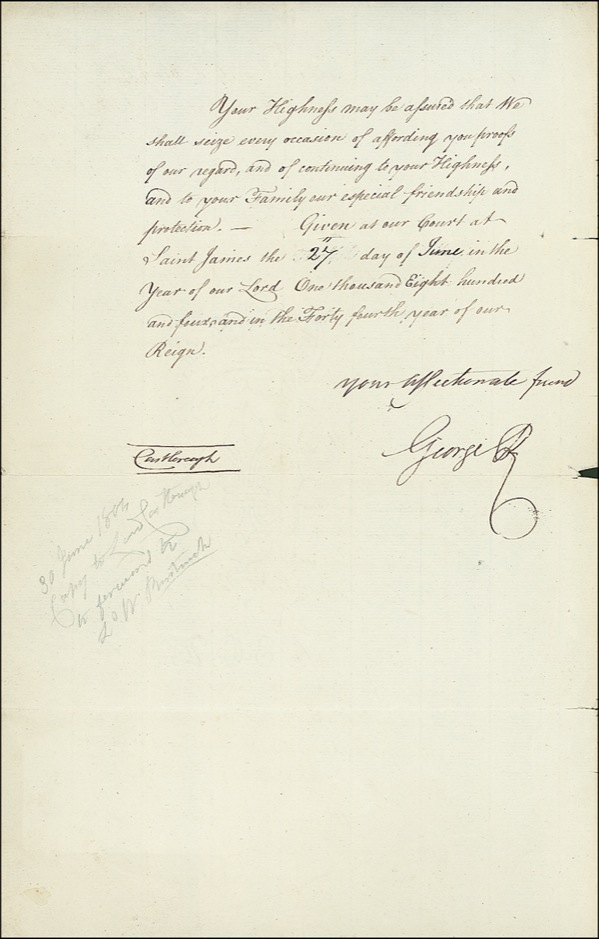 Your Highness may be assured that We
shall seize every occasion of affording you proofs
of our regard, and of continuing to your Highness,
and to your Family our especial friendship and
protection. — Given at our Court at
Saint James the 27th day of June in the
Year of our Lord One thousand Eight hundred
and four, and in the Forty fourth year of our
Reign.
your affectionate friend
George R
Castlereagh
30 June 1804
Copy to Lord Castlereagh
to forward to
Ld W